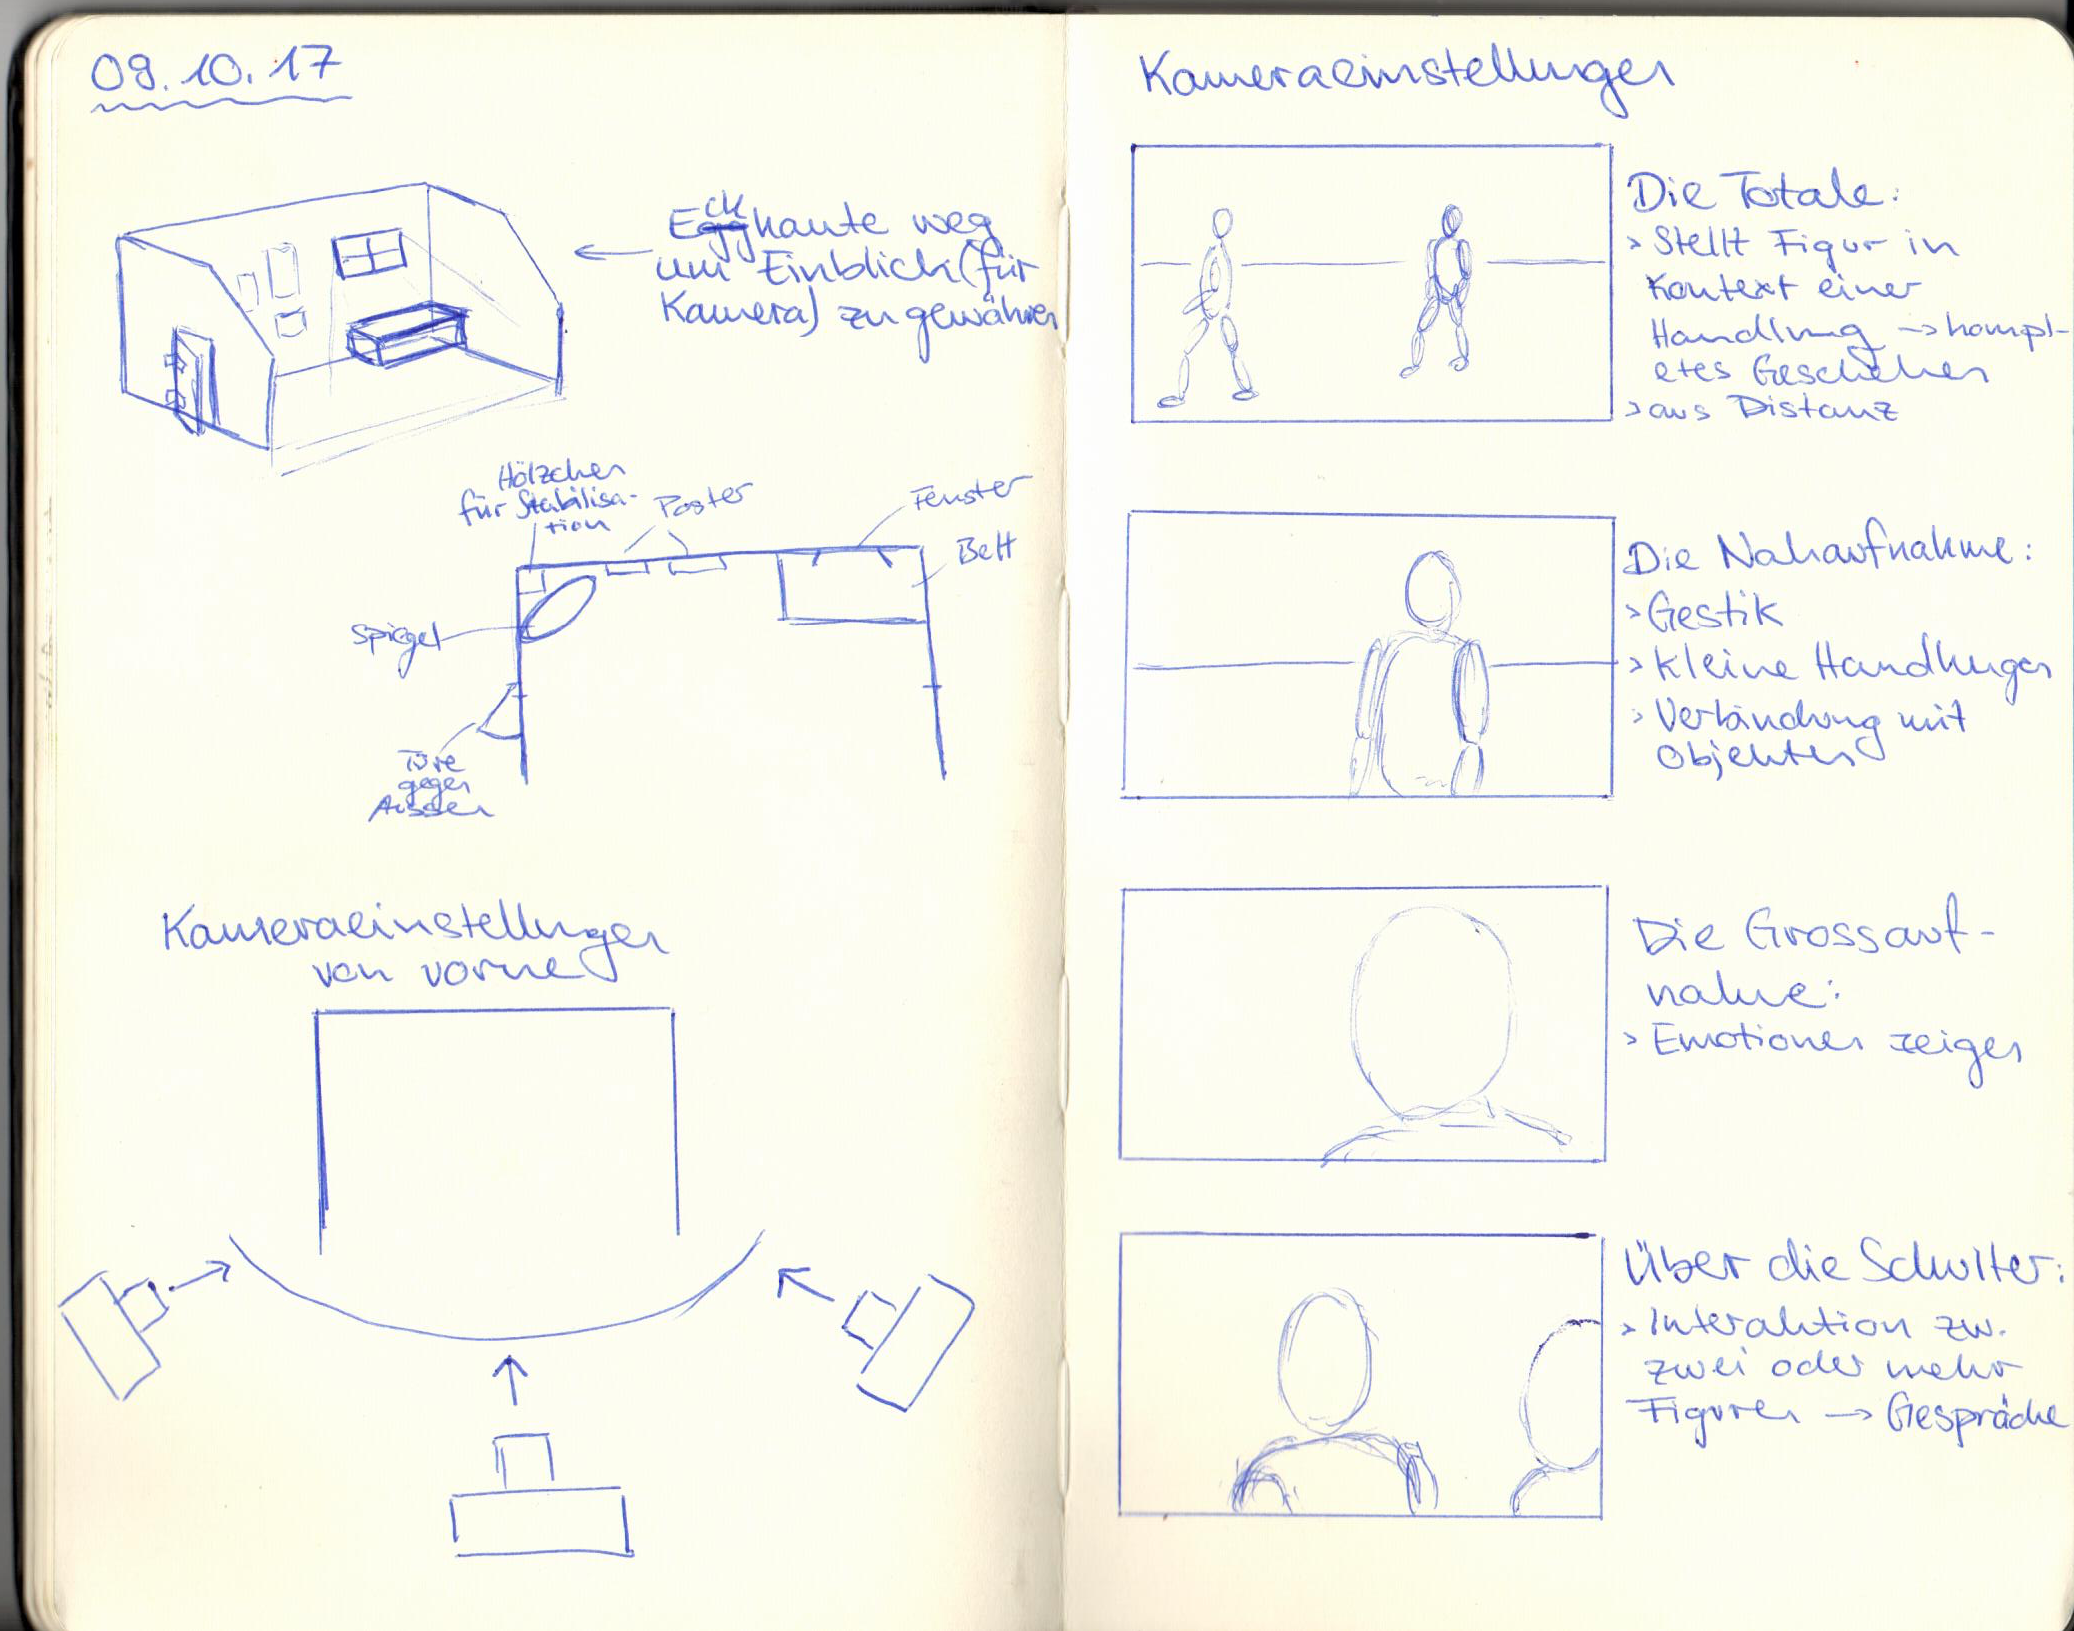 09.10.17
Eckkante weg
um Einblick (für
Kamera) zu gewähren
Hölzchen
für Stabilisa-
tion
Poster
Fenster
Bett
Spiegel
Türe
gegen
Aussen
Kameraeinstellungen
von vorne
Kameraeinstellungen
Die Totale:
> Stellt Figur in
Kontext einer
Handlung → kompl-
etes Geschehen
> aus Distanz
Die Nahaufnahme:
> Gestik
> Kleine Handlungen
> Verbindung mit
Objekten
Die Grossauf-
nahme:
> Emotionen zeigen
Über die Schulter:
> Interaktion zw.
zwei oder mehr
Figuren → Gespräche